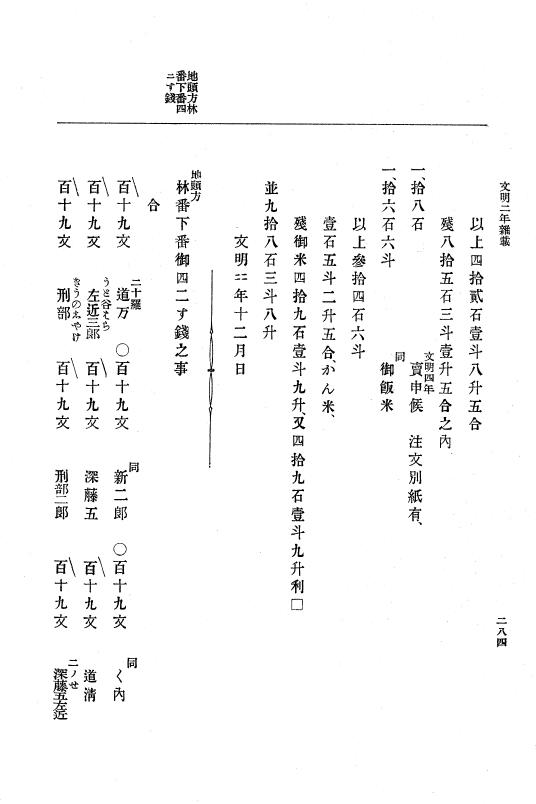 文明二年雜載
二八四
地頭方林
番下番四
ニす錢
以上四拾貳石壹斗八升五合
殘八拾五石三斗壹升五合之內
一、拾八石 文明四年 賣申候 注文別紙有、
一、拾六石六斗 同 御飯米
以上參拾四石六斗
壹石五斗二升五合、かん米、
殘御米四拾九石壹斗九升、又四拾九石壹斗九升利□
並九拾八石三斗八升
文明二年十二月日
地頭方
林番下番御四二す錢之事
合
百十九文 二十羅 道万 〇百十九文 同 新二郎 〇百十九文 同 く內
百十九文 うと谷はち 左近三郎 百十九文 深藤五 百十九文 道淸
百十九文 きうのみやけ 刑部 百十九文 刑部二郎 百十九文 二ノせ 深藤五左近